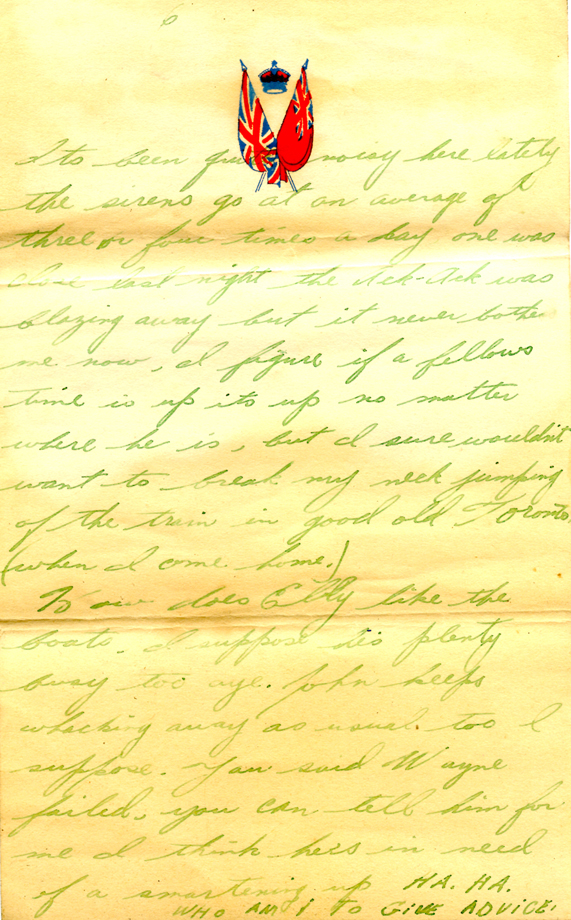 6
Its been quite noisy here lately
the sirens go at an average of
three or four times a day one was
close last night the Ack-Ack was
blazing away but it never bothe
me now, I figure if a fellows
time is up its up no matter
where he is, but I sure wouldn't
want to break my neck jumping
of the train in good old Toronto
(when I come home.)
How does Elly like the
boats. I suppose his plenty
busy too aye. John keeps
whacking away as usual too I
suppose. You said Wayne
failed, you can tell him for
me I think hes in need
of a smartening up HA. HA.
WHO AM I TO GIVE ADVICE.